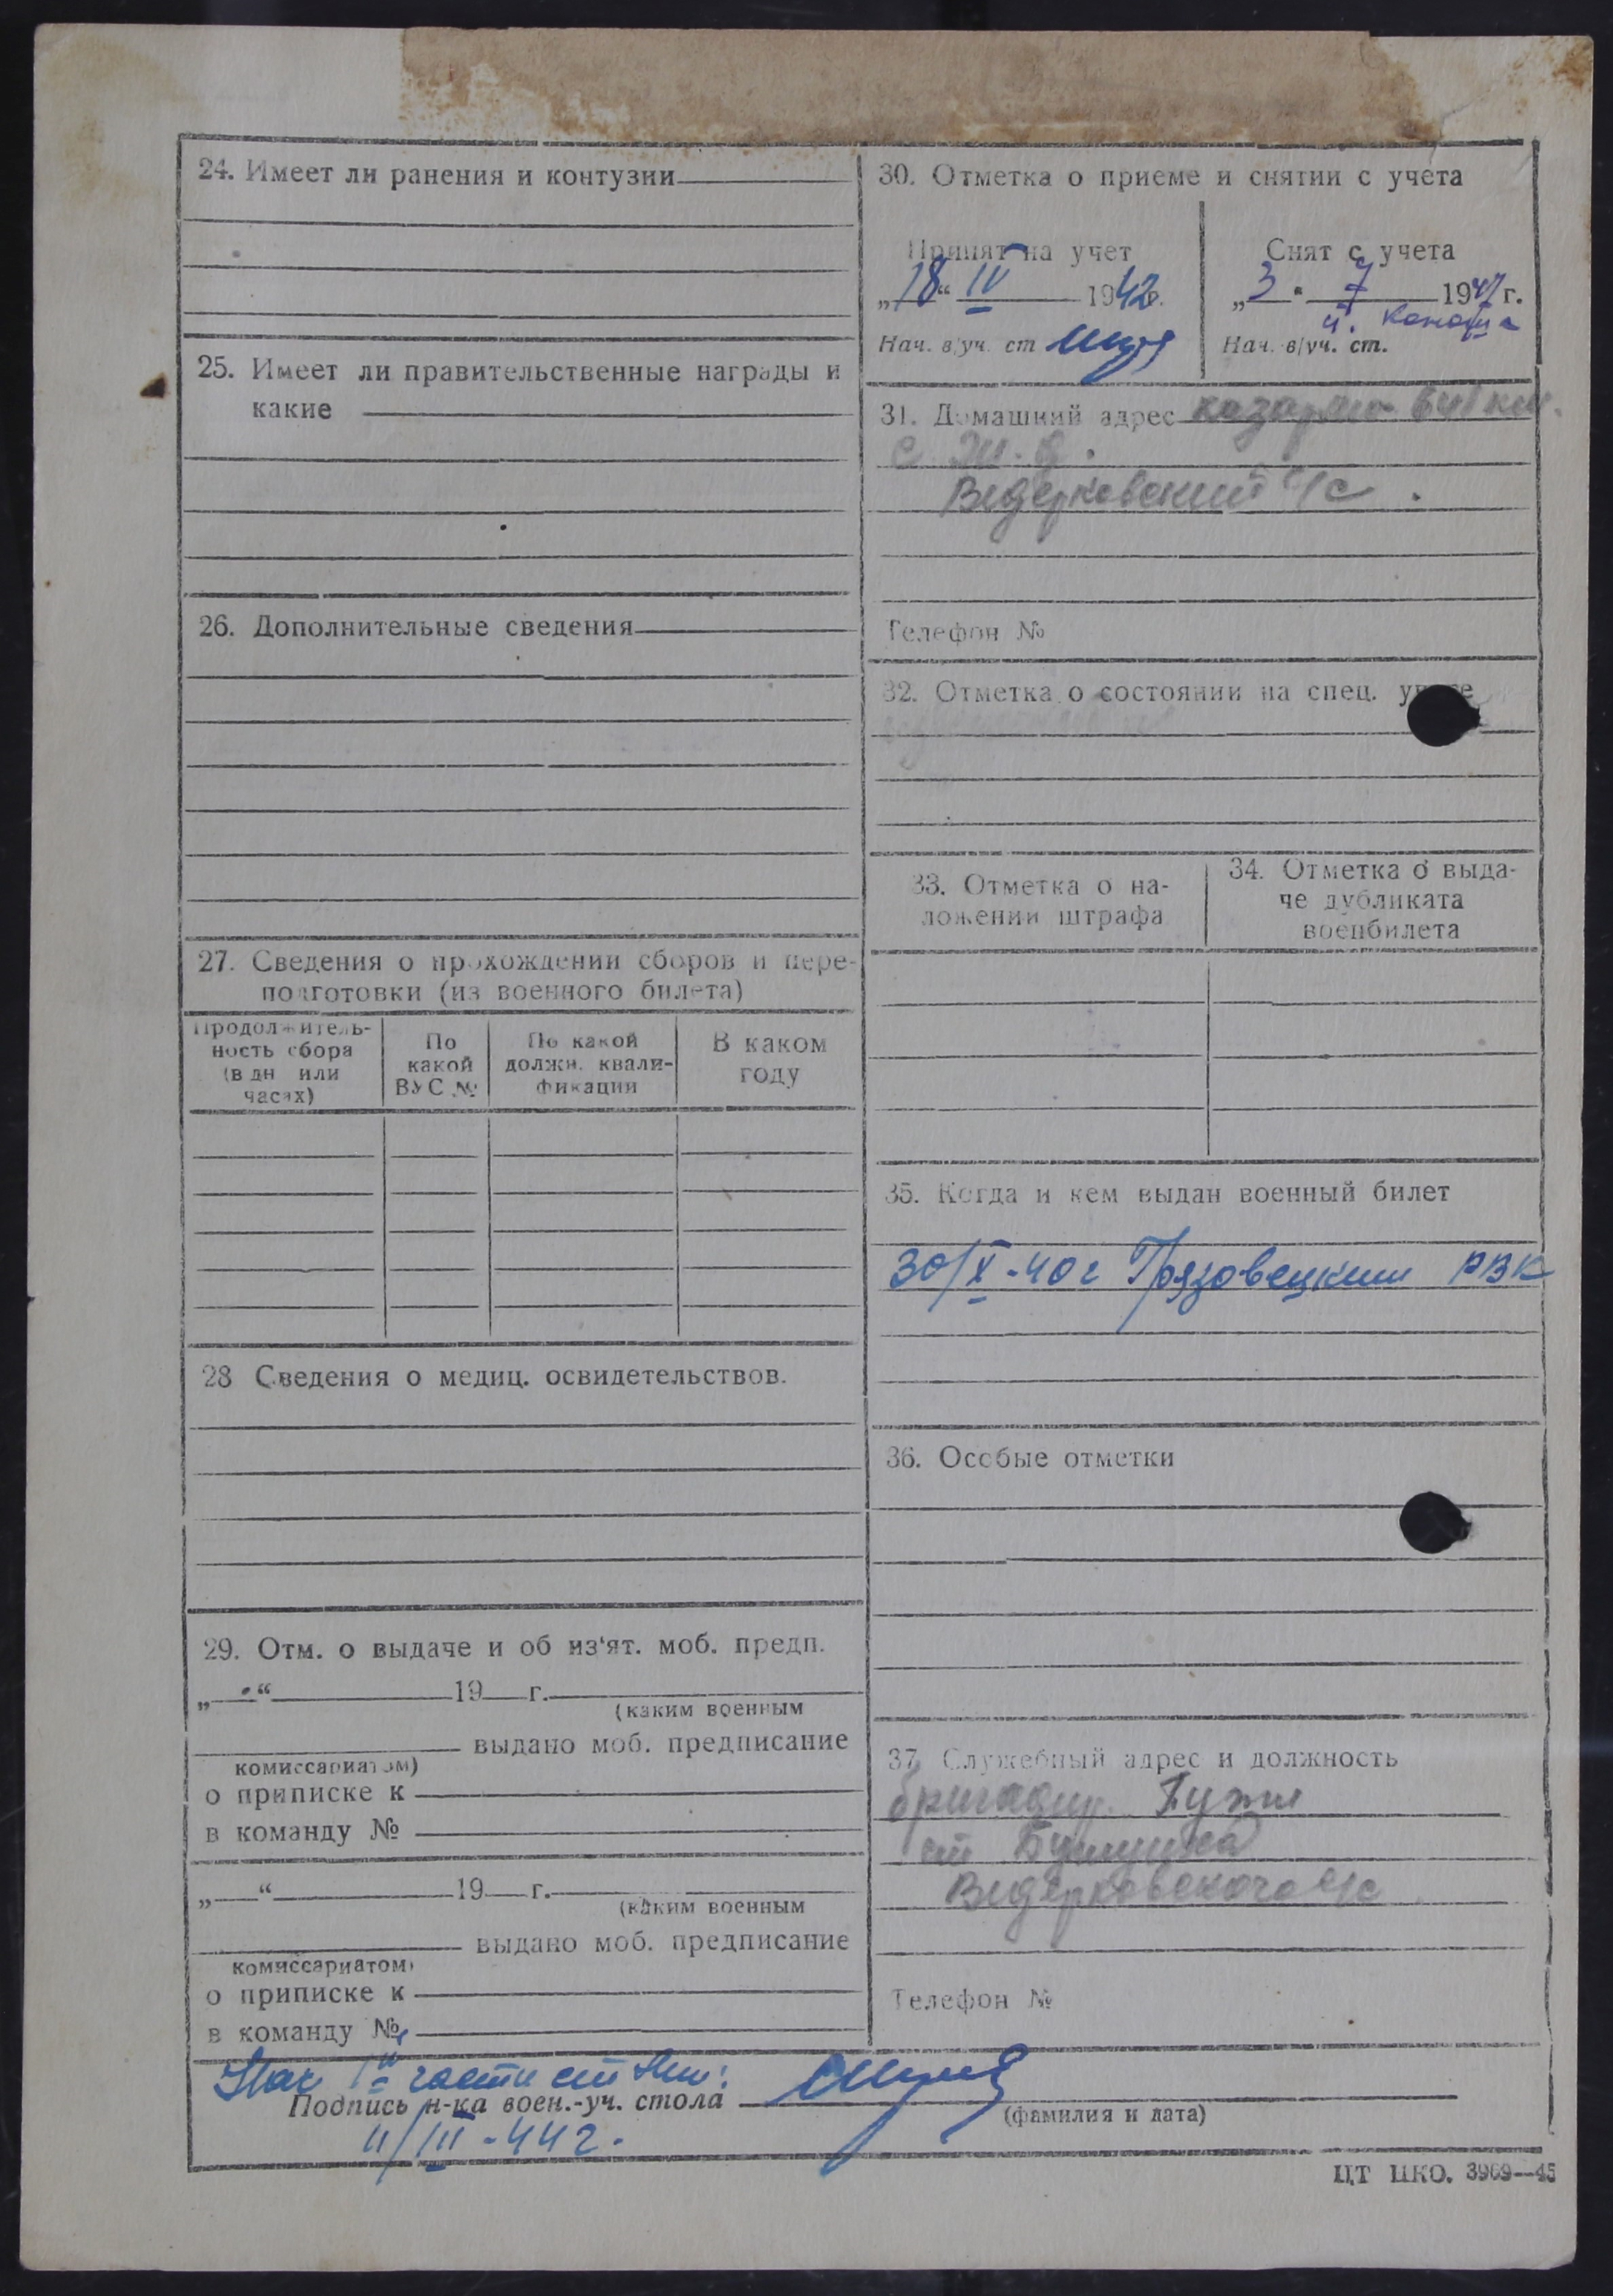 24. Имеет ли ранения и контузии
25. Имеет ли правительственные награды и
какие
26. Дополнительные сведения
27. Сведения о прохождении сборов и пере-
подготовки (из военного билета)
Продолжитель-
ность сбора
(в дн или
часах)
По
какой
ВУС №
По какой
должн. квали-
фикации
В каком
году
28 Сведения о медиц. освидетельствов.
29. Отм. о выдаче и об из'ят. моб. предп.
„ “ 19 г.
(каким военным
выдано моб. предписание
комиссариатом)
о приписке к
в команду №
„ “ 19 г.
(каким военным
выдано моб. предписание
комиссариатом)
о приписке к
в команду №
30. Отметка о приеме и снятии с учета
Принят на учет
„18“ IV 1942г.
Нач. в/уч. ст
Снят с учета
„3 “ 7 1947 г.
Нач. в/уч. ст.
31. Домашний адрес казарма 641 км.
с. ж. д.
Ведерковский с/с.
Телефон №
32. Отметка о состоянии на спец. учете
33. Отметка о на-
ложении штрафа
34. Отметка о выда-
че дубликата
военбилета
35. Когда и кем выдан военный билет
30/X-40г Грязовецким РВК
36. Особые отметки
37. Служебный адрес и должность
бригадир.
ст Бушуиха
Ведерковского с/с
Телефон №
Нач 1й части
Подпись н-ка воен.-уч. стола
(фамилия и дата)
11/III-44г.
ЦТ НКО. 3969—45